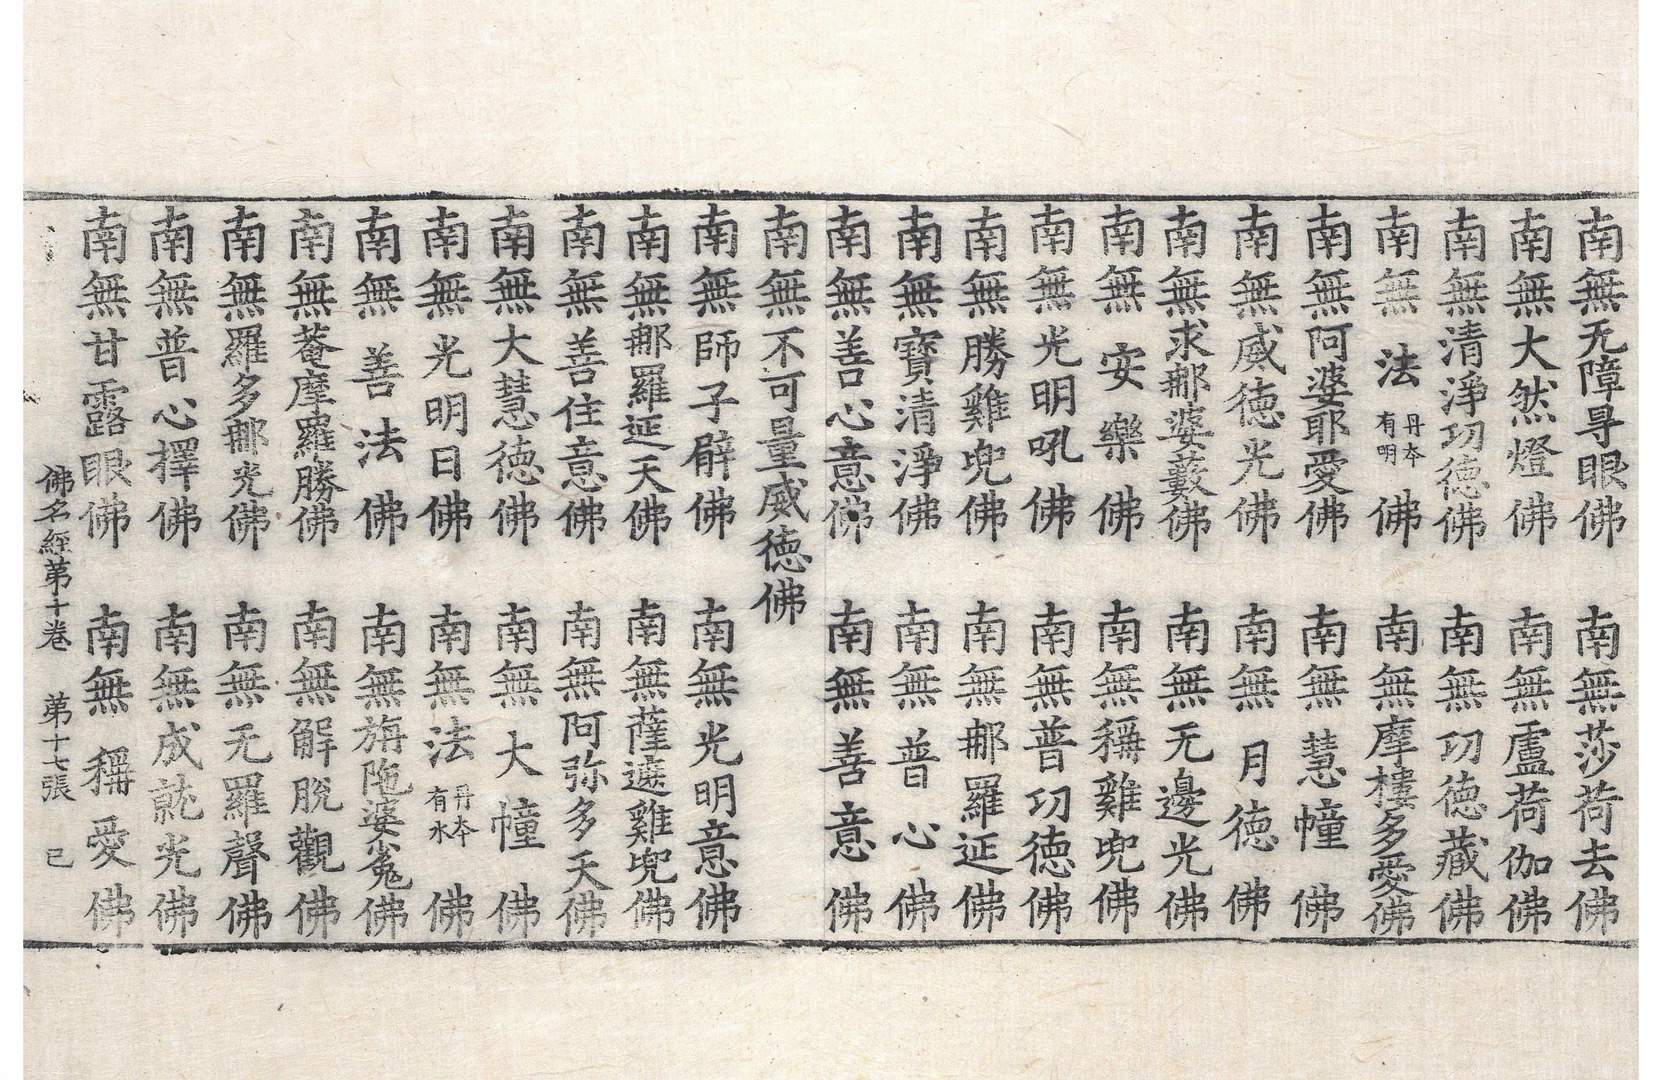 南無无障㝵眼佛　南無莎荷去佛
南無大然燈佛　南無盧荷伽佛
南無清淨功德佛　南無功德藏佛
南無法丹本有明佛　南無摩樓多愛佛
南無阿婆耶愛佛　南無慧幢佛
南無威德光佛　南無月德佛
南無求那婆藪佛　南無无邊光佛
南無安樂佛　南無稱雞兜佛
南無光明吼佛　南無普功德佛
南無勝雞兜佛　南無那羅延佛
南無寶清淨佛　南無普心佛
南無善心意佛　南無善意佛
南無不可量威德佛
南無師子臂佛　南無光明意佛
南無那羅延天佛　南無薩遮雞兜佛
南無善住意佛　南無阿弥多天佛
南無大慧德佛　南無大幢佛
南無光明日佛　南無法丹本有水佛
南無善法佛　南無旃陁婆㝹佛
南無菴摩羅勝佛　南無解脫觀佛
南無羅多那光佛　南無无羅聲佛
南無普心擇佛　南無成就光佛
南無甘露眼佛　南無稱愛佛
佛名經第十卷　第十七張　己